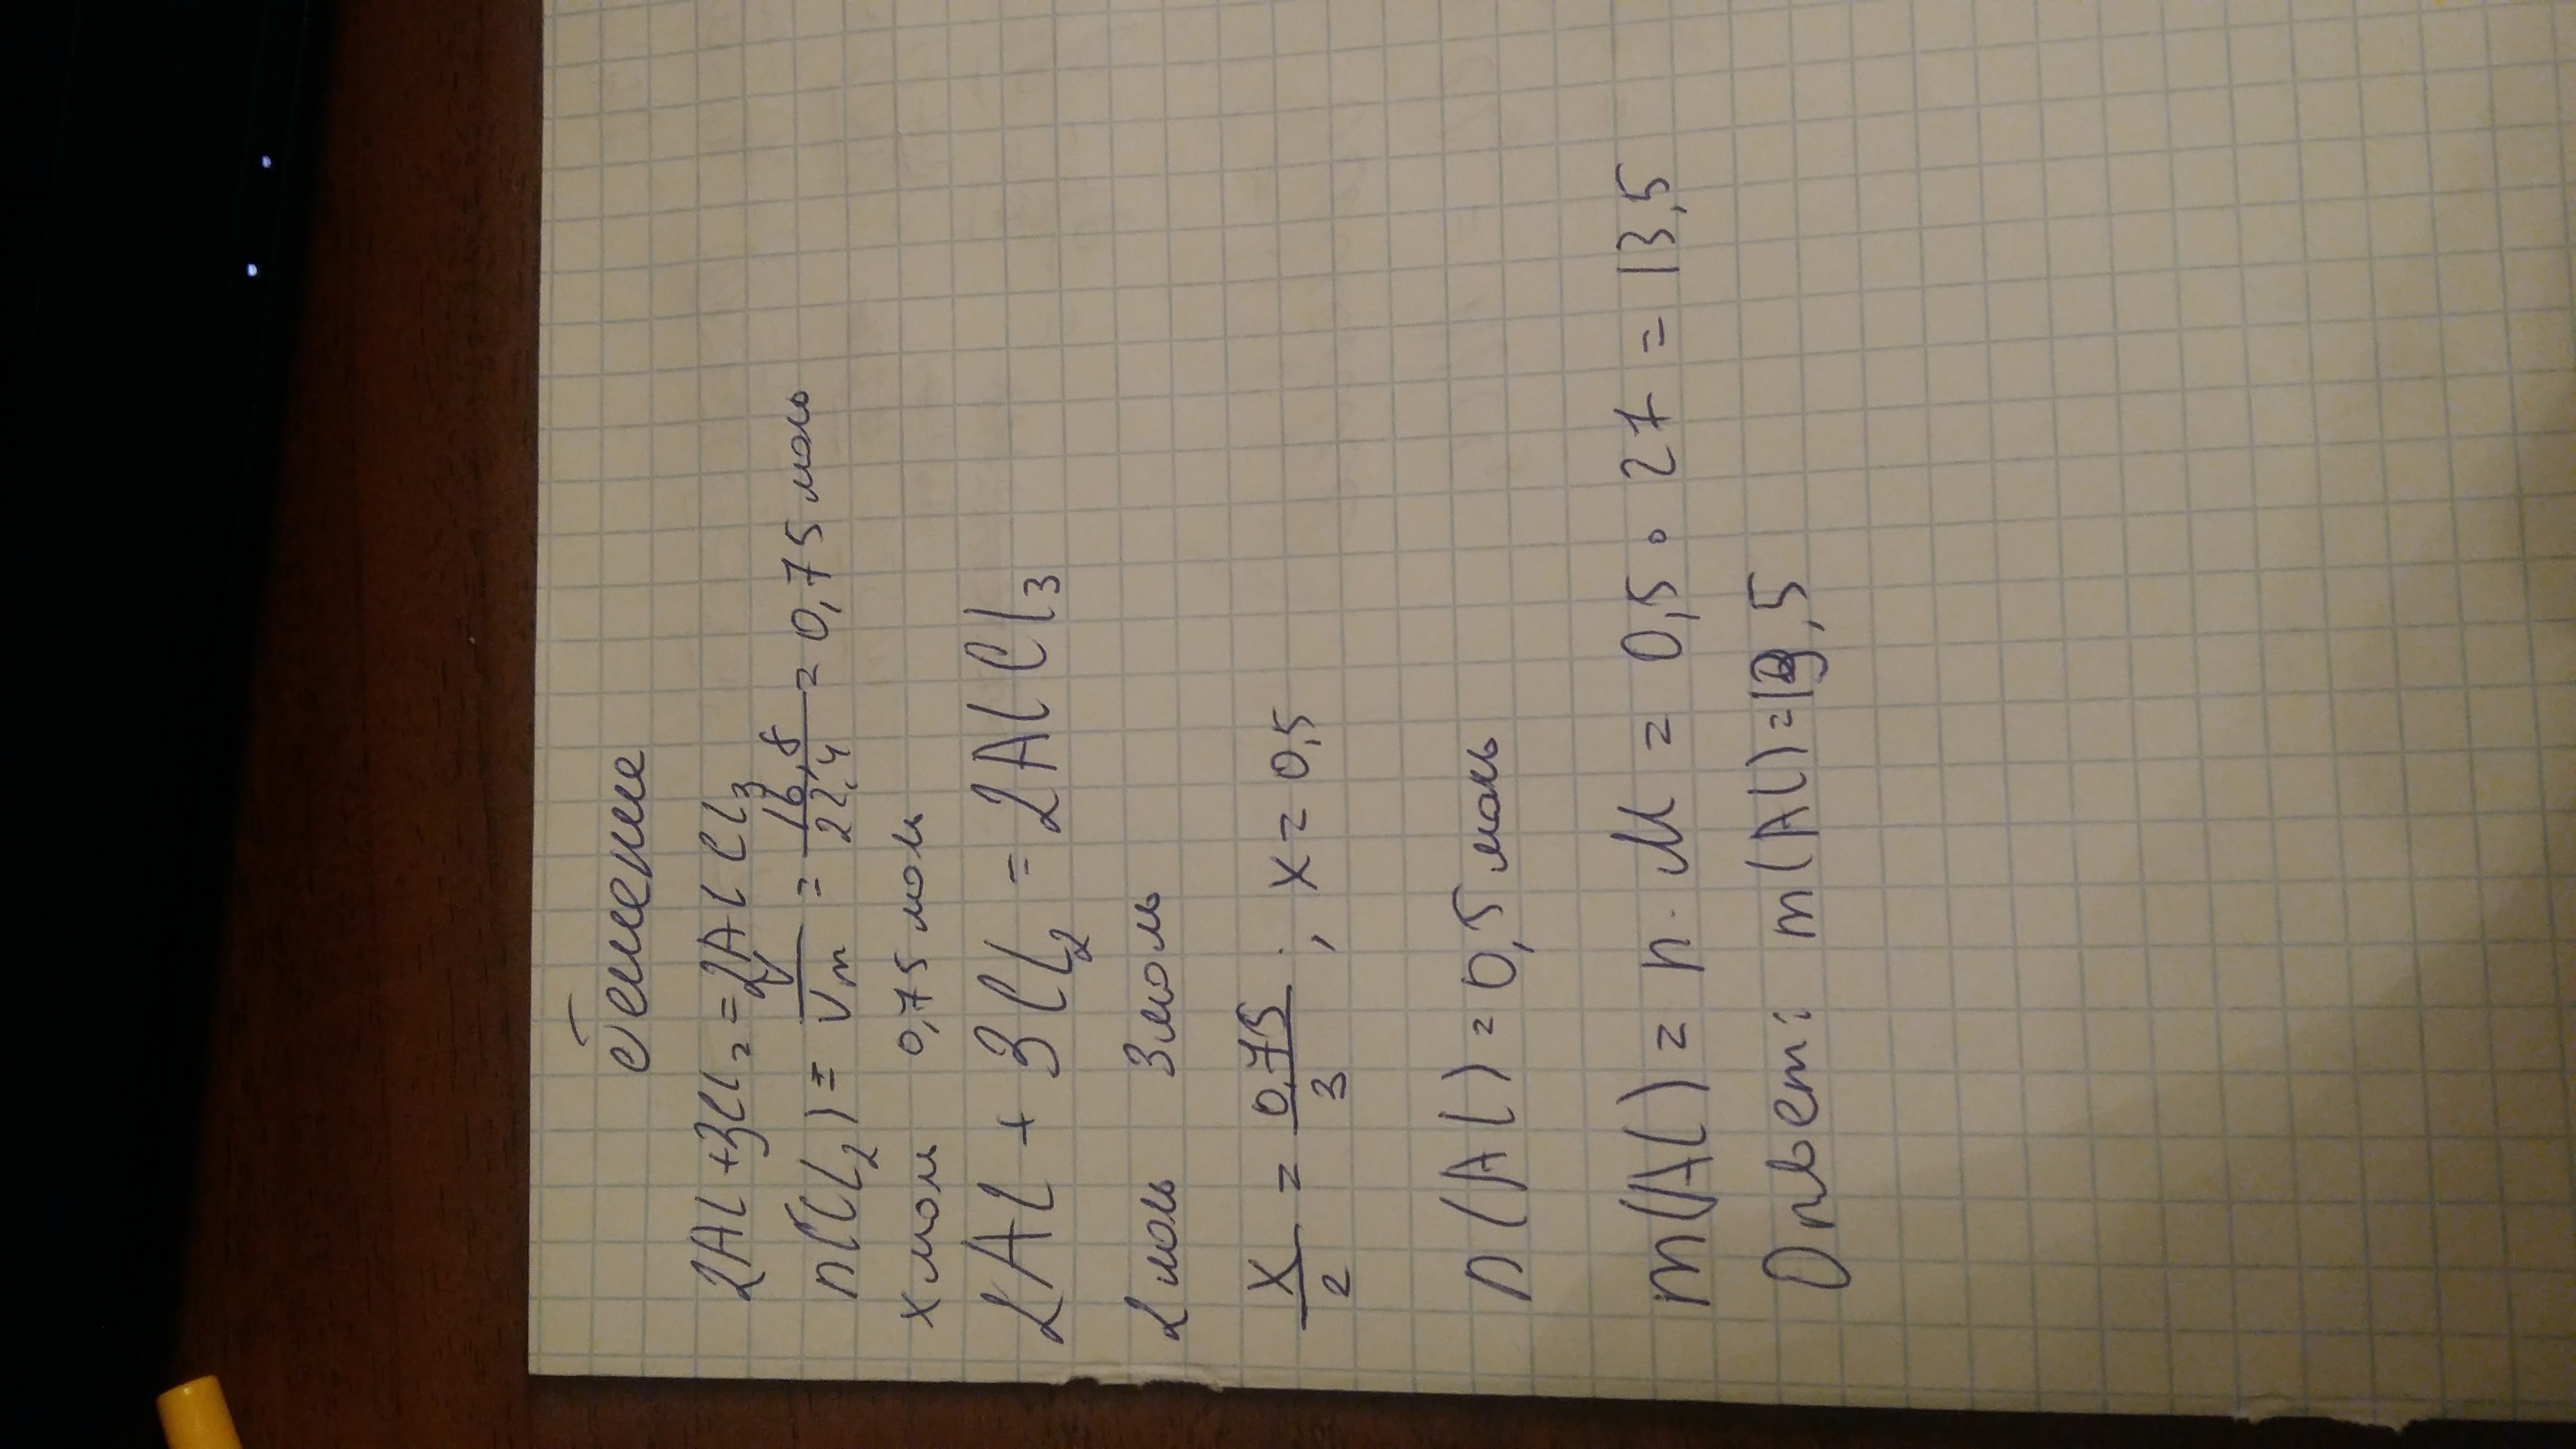 Решение
2Al+3Cl₂=2AlCl₃
n(Cl₂)= V/Vm = 16,8/22,4 = 0,75 моль
x моль 0,75 моль
2Al + 3Cl₂ = 2AlCl₃
2 моль 3 моль
x/2 = 0,75/3 ; x = 0,5
n(Al)=0,5 моль
m(Al)= n · M = 0,5 · 27 = 13,5
Ответ: m(Al)=13,5